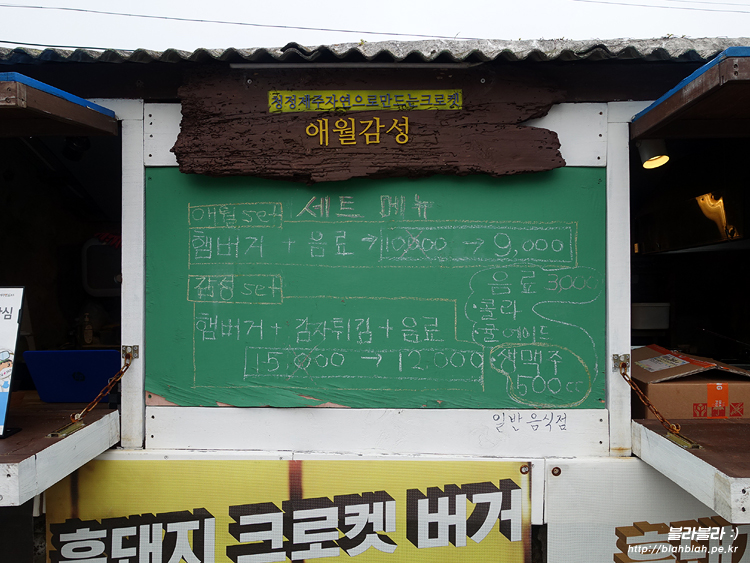 청정제주자연으로만드는크로켓
애월감성
세트 메뉴
애월 set
햄버거 + 음료 → 10,000 → 9,000
감성 set
햄버거 + 감자튀김 + 음료
15,000 → 12,000
음료 3,000
·콜라
·쿨에이드
생맥주
500cc
일반음식점
흑돼지 크로켓 버거
블라블라 :)
http://blahblah.pe.kr